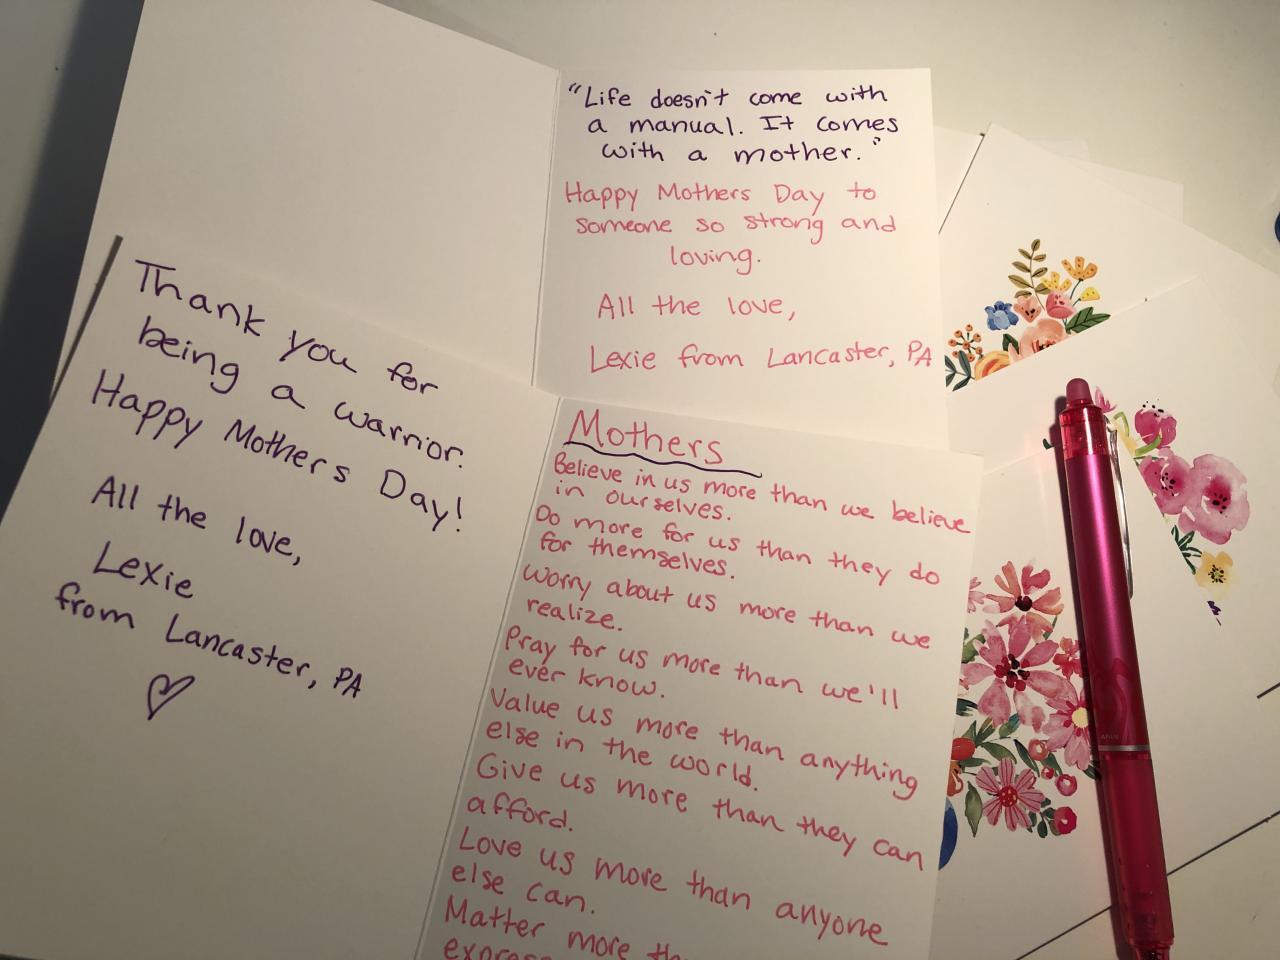 "Life doesn't come with
a manual. It comes
with a mother."
Happy Mothers Day to
someone so strong and
loving.
All the love,
Lexie from Lancaster, PA
Thank you for
being a warrior.
Happy Mothers Day!
All the love,
Lexie
from Lancaster, PA
Mothers
Believe in us more than we believe
in ourselves.
Do more for us than they do
for themselves.
Worry about us more than we
realize.
Pray for us more than we'll
ever know.
Value us more than anything
else in the world.
Give us more than they can
afford.
Love us more than anyone
else can.
Matter more